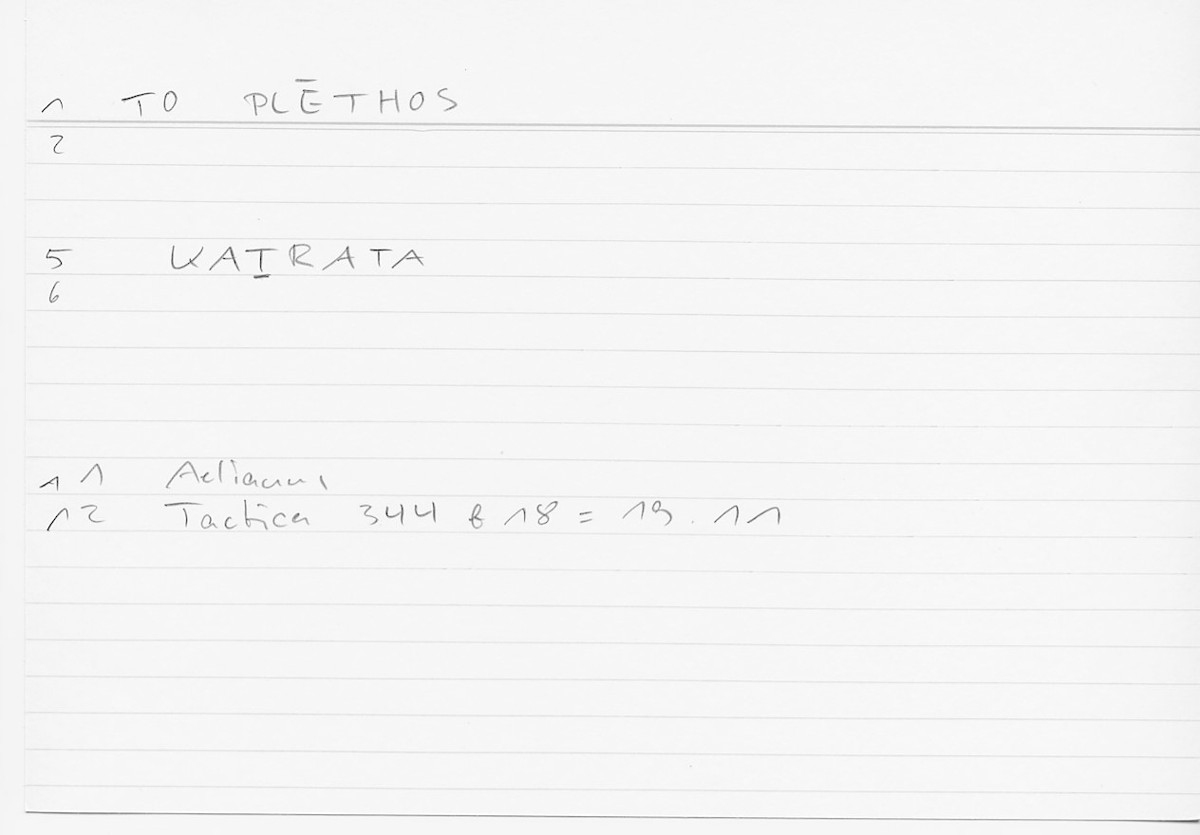 1 TO PLĒTHOS
2
5 KAṮRATA
6
11 Aelianus
12 Tactica 344 b 18 = 19.11